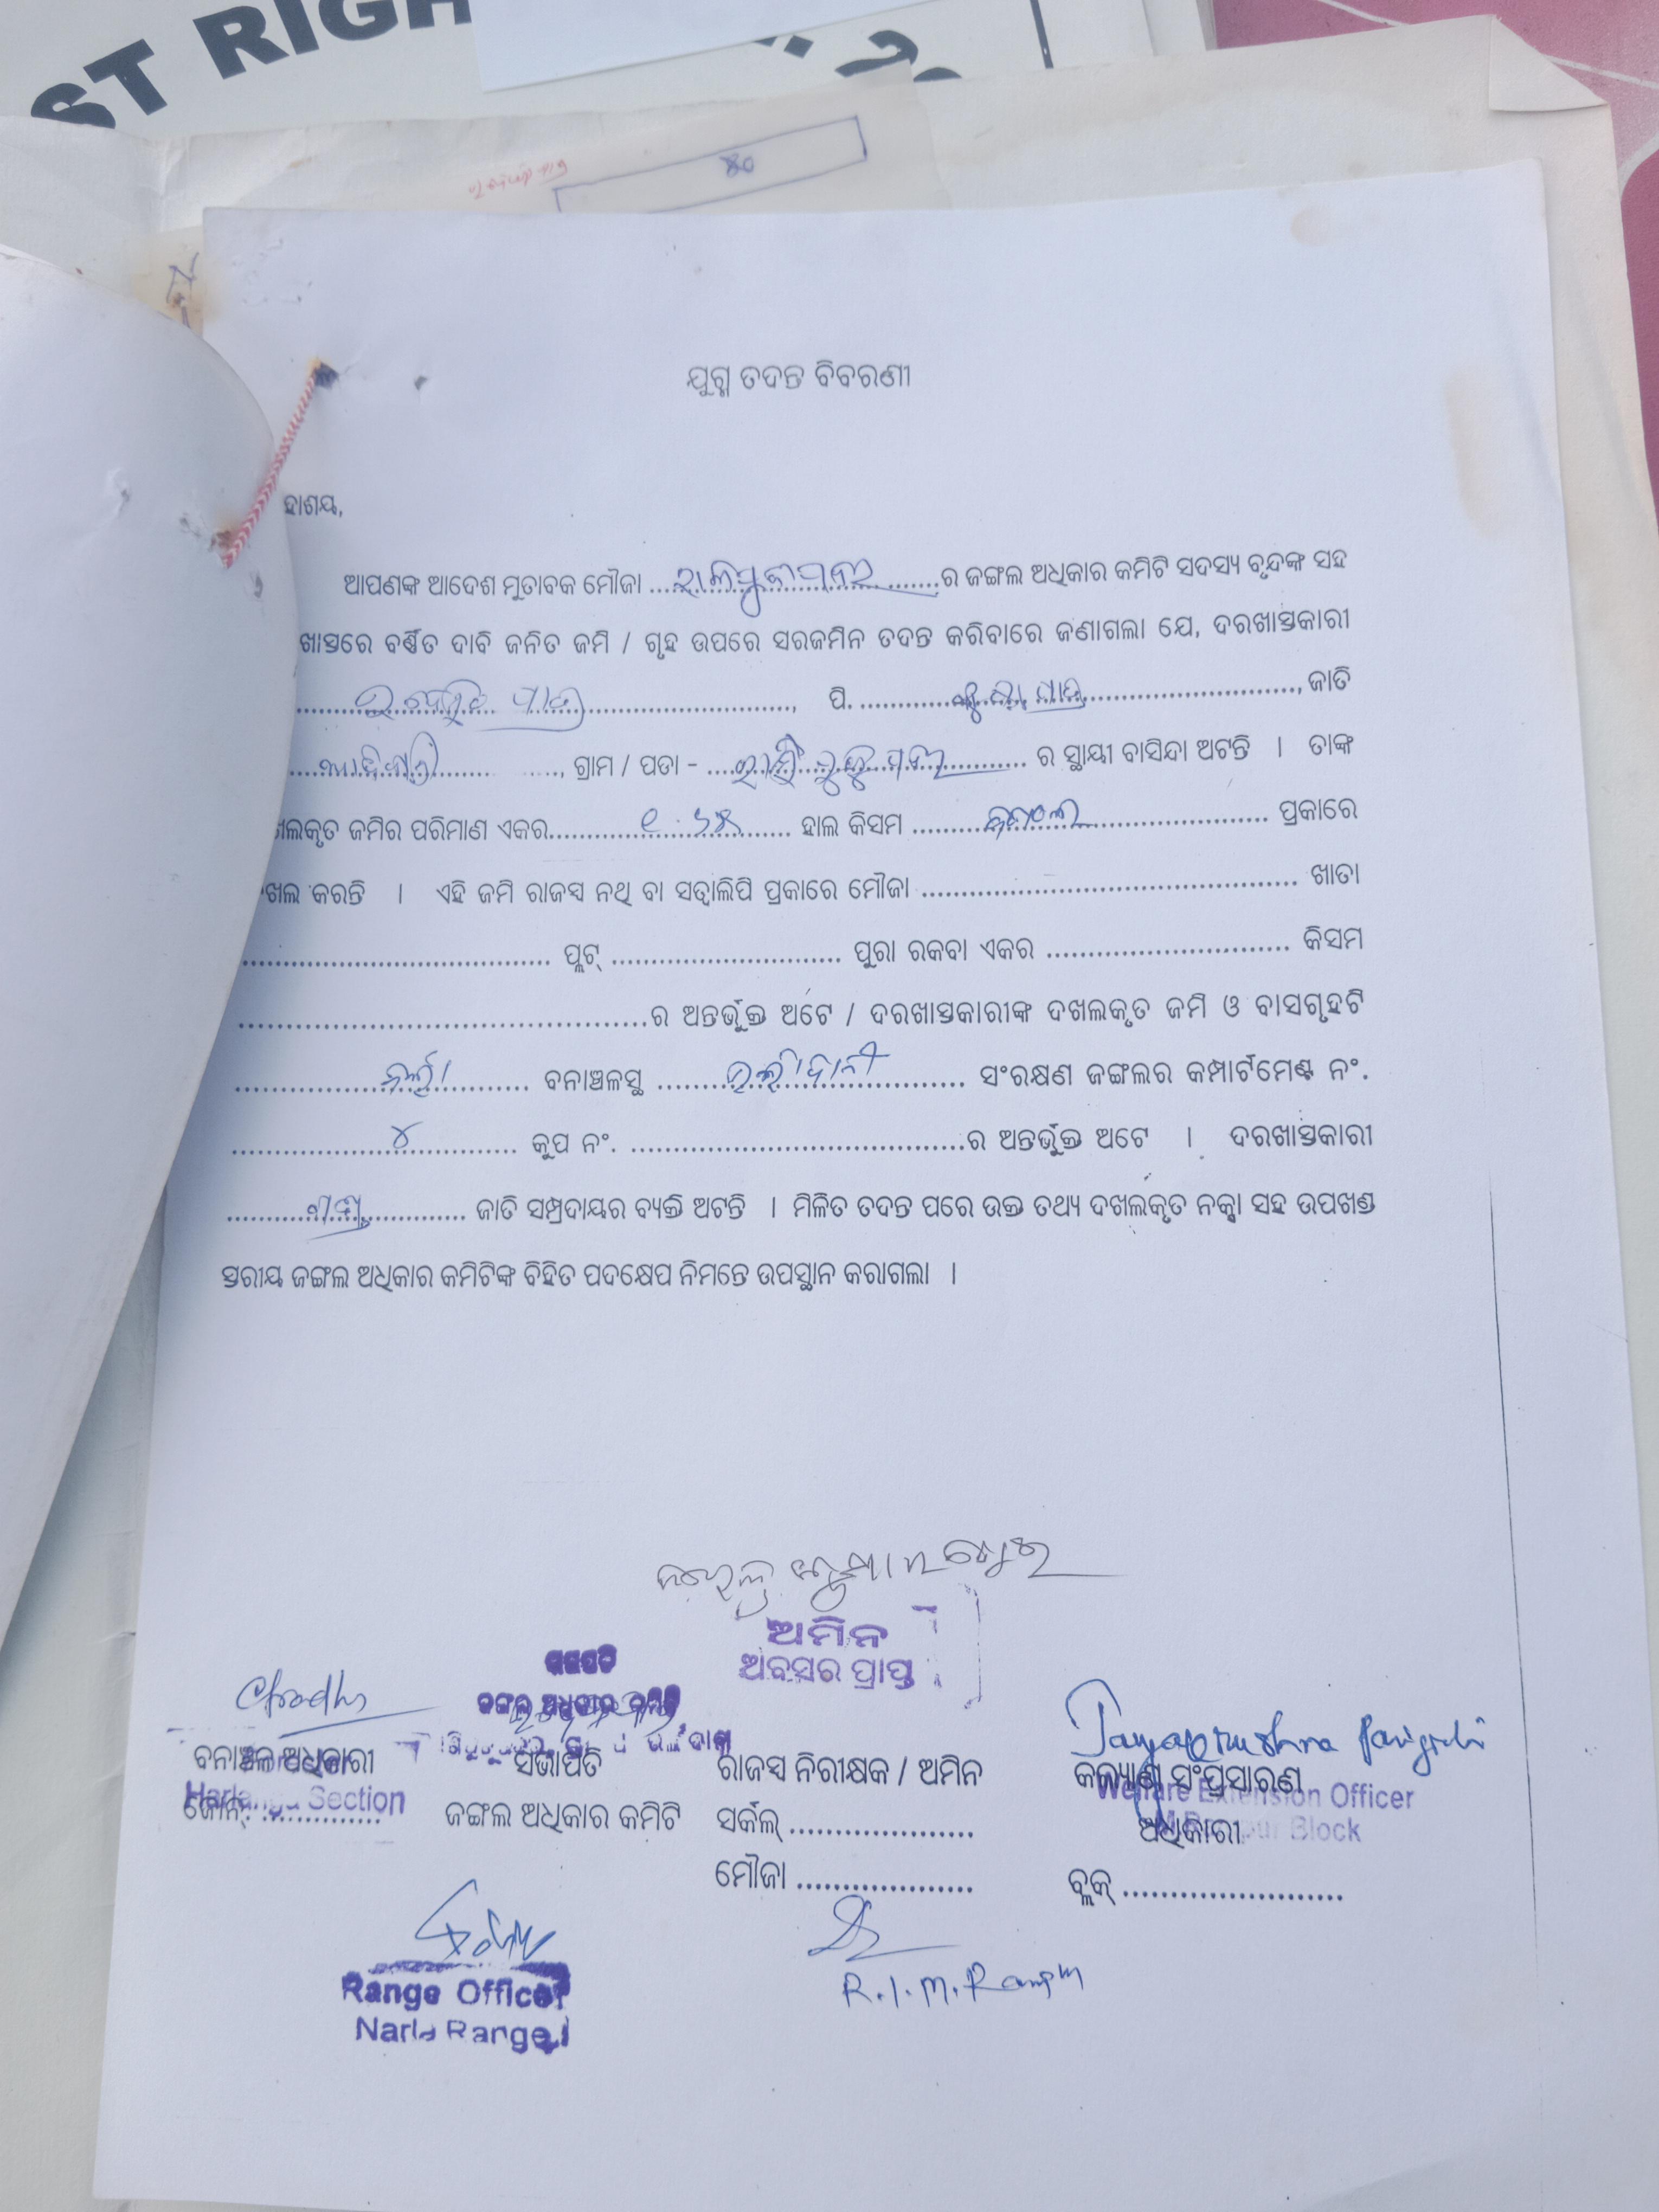 ST RIGH
୪୦
ଯୁଗ୍ମ ତଦନ୍ତ ବିବରଣୀ
ହାଶୟ,
ଆପଣଙ୍କ ଆଦେଶ ମୁତାବକ ମୌଜା ..............................ର ଜଙ୍ଗଲ ଅଧିକାର କମିଟି ସଦସ୍ୟ ବୃନ୍ଦଙ୍କ ସହ
ଖାସ୍ତରେ ବର୍ଣ୍ଣିତ ଦାବି ଜନିତ ଜମି / ଗୃହ ଉପରେ ସରଜମିନ ତଦନ୍ତ କରିବାରେ ଜଣାଗଲା ଯେ, ଦରଖାସ୍ତକାରୀ
.............................., ପି. .............................., ଜାତି
ଆଦିବାସୀ, ଗ୍ରାମ / ପଡା - .............................. ର ସ୍ଥାୟୀ ବାସିନ୍ଦା ଅଟନ୍ତି । ତାଙ୍କ
ଖଲକୃତ ଜମିର ପରିମାଣ ଏକର.................... ହାଲ କିସମ ଜଙ୍ଗଲ ପ୍ରକାରେ
ଖଲ କରନ୍ତି । ଏହି ଜମି ରାଜସ୍ୱ ନଥି ବା ସତ୍ୱାଲିପି ପ୍ରକାରେ ମୌଜା .............................. ଖାତା
.............................. ପ୍ଲଟ୍ .............................. ପୁରା ରକବା ଏକର .............................. କିସମ
..............................ର ଅନ୍ତର୍ଭୁକ୍ତ ଅଟେ / ଦରଖାସ୍ତକାରୀଙ୍କ ଦଖଲକୃତ ଜମି ଓ ବାସଗୃହଟି
ନର୍ଲା ବନାଞ୍ଚଳସ୍ଥ .............................. ସଂରକ୍ଷଣ ଜଙ୍ଗଲର କମ୍ପାର୍ଟମେଣ୍ଟ ନଂ.
୪ କୁପ ନଂ. ..............................ର ଅନ୍ତର୍ଭୁକ୍ତ ଅଟେ । ଦରଖାସ୍ତକାରୀ
.............................. ଜାତି ସମ୍ପ୍ରଦାୟର ବ୍ୟକ୍ତି ଅଟନ୍ତି । ମିଳିତ ତଦନ୍ତ ପରେ ଉକ୍ତ ତଥ୍ୟ ଦଖଲକୃତ ନକ୍ସା ସହ ଉପଖଣ୍ଡ
ସ୍ତରୀୟ ଜଙ୍ଗଲ ଅଧିକାର କମିଟିଙ୍କ ବିହିତ ପଦକ୍ଷେପ ନିମନ୍ତେ ଉପସ୍ଥାନ କରାଗଲା ।
ଅମିନ
ଅବସର ପ୍ରାପ୍ତ
ସଭାପତି
ଜଙ୍ଗଲ ଅଧିକାର କମିଟି
ବନାଞ୍ଚଳ ଅଧିକାରୀ ସଭାପତି ରାଜସ୍ୱ ନିରୀକ୍ଷକ / ଅମିନ କଲ୍ୟାଣ ସଂପ୍ରସାରଣ
Section Welfare Extension Officer
ଜୋନ୍. .............. ଜଙ୍ଗଲ ଅଧିକାର କମିଟି ସର୍କଲ୍ .................... ଅଧିକାରୀ
Block
ମୌଜା .................... ବ୍ଲକ୍ ........................
Range Officer
Narla Range
R.I.M.Rampur